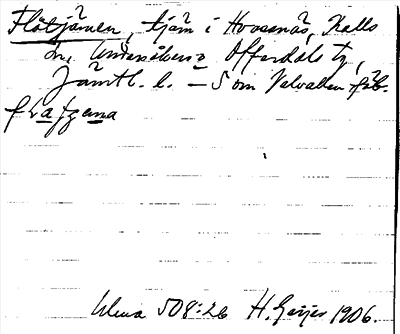 Flåtjärnen, tjärn i Huså, Kalls
sn, Undersåkers o Offerdals tg,
Jämtl. l. – S om Valvallen fäb.
flatjena
Ulma 508:26 H. Geijer 1906.